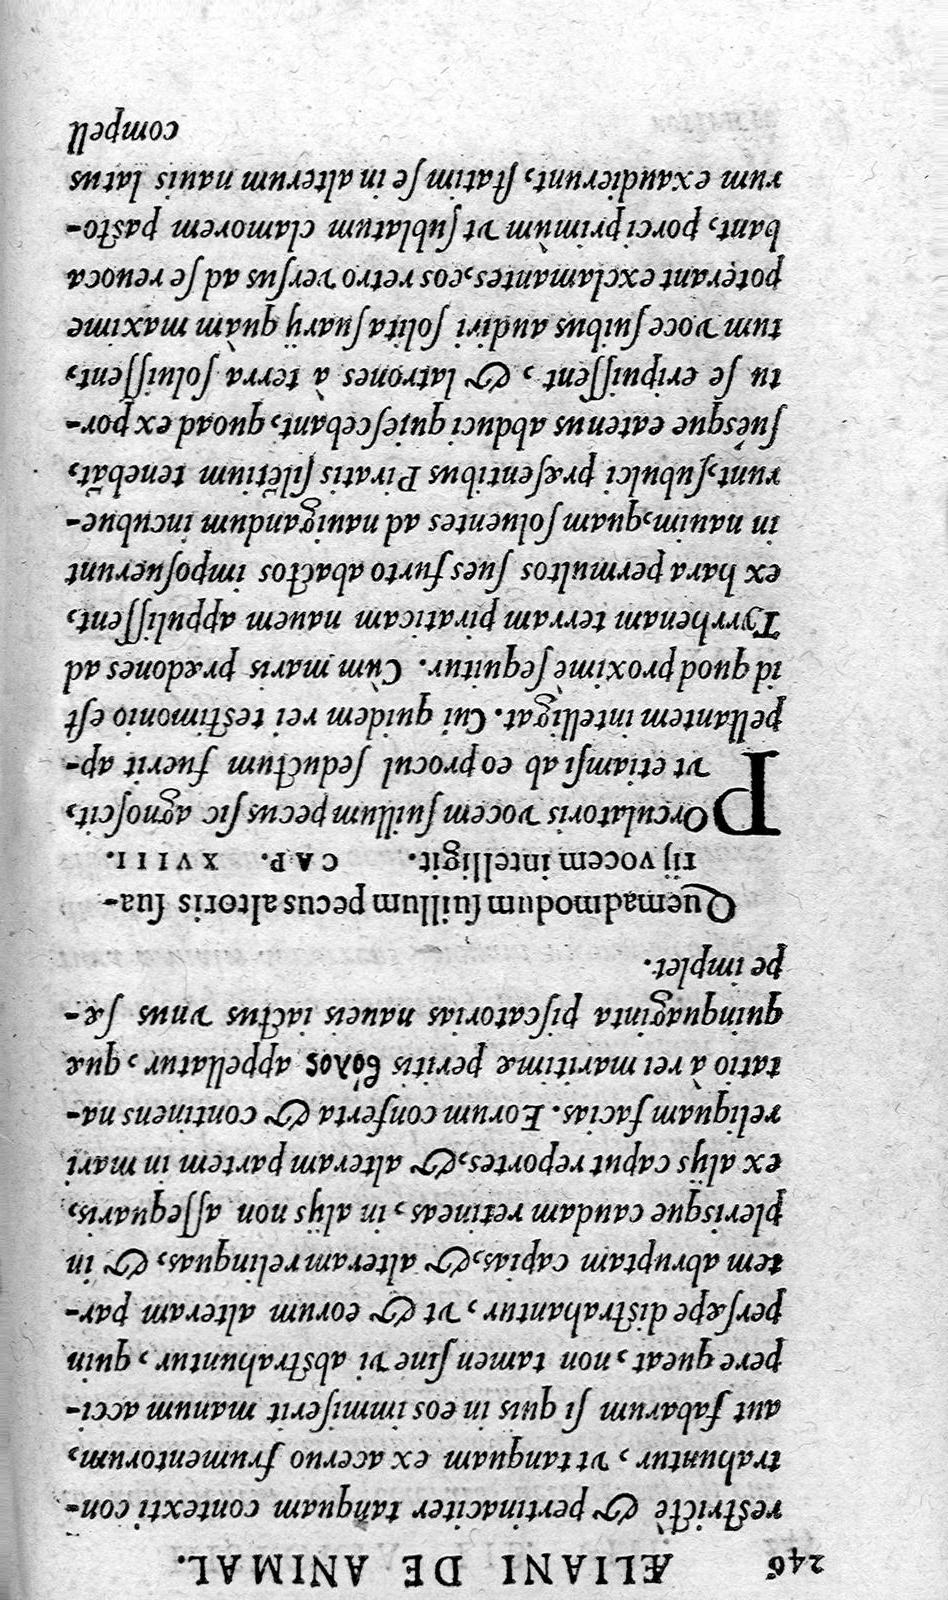 246 ÆLIANI DE ANIMAL.
restrictè & pertinaciter tanquam contexti con-
trahuntur, vt tanquam ex aceruo frumentorum,
aut fabarum si quis in eos immiserit manum acci-
pere queat, non tamen sine vi abstrahuntur, quin
persæpe distrahantur, vt & eorum alteram par-
tem abruptam capias, & alteram relinquas, & in
plerisque caudam retineas, in alijs non assequaris,
ex alijs caput reportes, & alteram partem in mari
reliquam facias. Eorum conferta & continens na-
tatio à rei maritimæ peritis βόλος appellatur, quæ
quinquaginta piscatorias naueis iactus vnus sæ-
pe implet.
Quemadmodum suillum pecus altoris sua-
rij vocem intelligit. CAP. XVIII.
Porculatoris vocem suillum pecus sic agnoscit,
vt etiamsi ab eo procul seductum fuerit ap-
pellantem intelligat. Cui quidem rei testimonio est
id quod proximè sequitur. Cùm maris prædones ad
Tyrrhenam terram piraticam nauem appulissent,
ex hara permultos sues furto abactos imposuerunt
in nauim, quam soluentes ad nauigandum incubue-
runt, subulci præsentibus Piratis silētium tenebāt,
suésque eatenus abduci quiescebant, quoad ex por-
tu se eripuissent, & latrones à terra soluissent,
tum voce suibus audiri solita suarij quàm maxime
poterant exclamantes, eos retro versus ad se reuoca
bant, porci primùm vt sublatum clamorem pasto-
rum exaudierunt, statim se in alterum nauis latus
compell